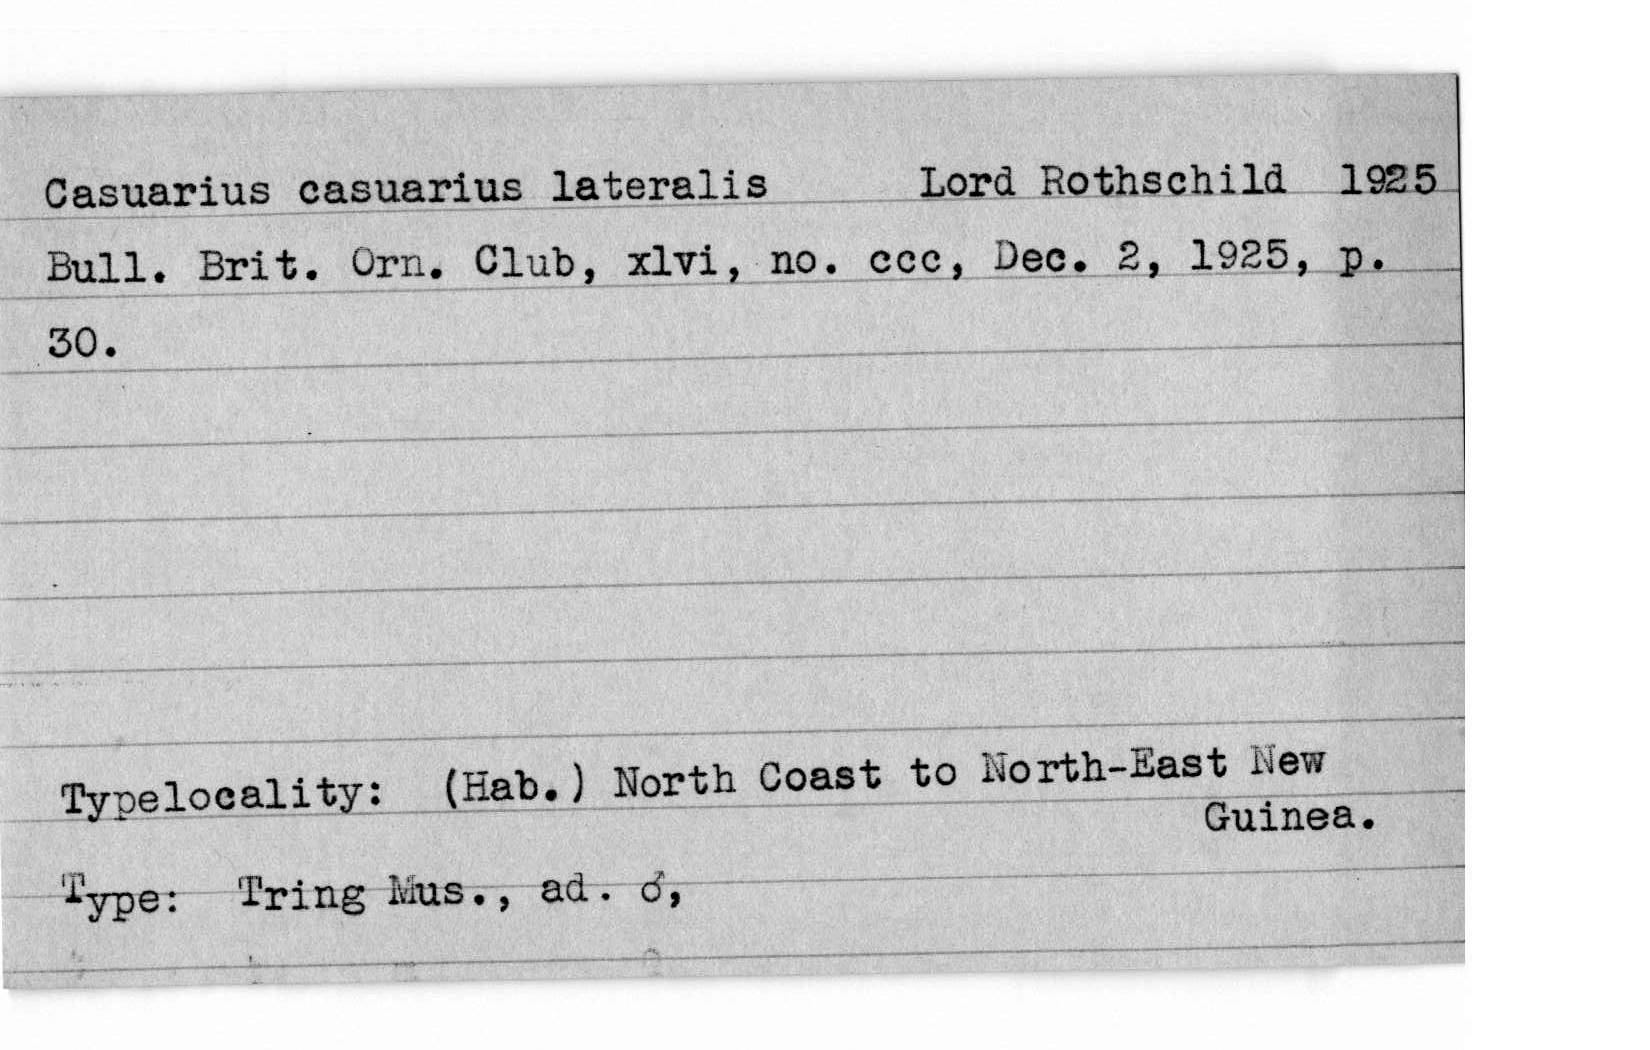 Casuarius casuarius lateralis Lord Rothschild 1925
Bull. Brit. Orn. Club, xlvi, no. ccc, Dec. 2, 1925, p.
30.
Typelocality: (Hab.) North Coast to North-East New
Guinea.
Type: Tring Mus., ad. ♂,